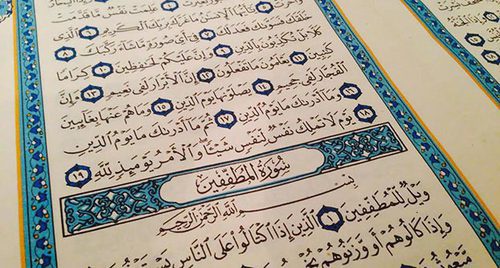 عَلِمَتْ نَفْسٌ مَّا قَدَّمَتْ
يَٰٓأَيُّهَا ٱلْإِنسَٰنُ مَا غَرَّكَ بِرَبِّكَ ٱلْكَرِيمِ ٦ ٱلَّذِى
خَلَقَكَ فَسَوَّىٰكَ فَعَدَلَكَ ٧ فِىٓ أَىِّ صُورَةٍ مَّا شَآءَ رَكَّبَكَ ٨
كَلَّا بَلْ تُكَذِّبُونَ بِٱلدِّينِ ٩ وَإِنَّ عَلَيْكُمْ لَحَٰفِظِينَ ١٠ كِرَامًا
كَٰتِبِينَ ١١ يَعْلَمُونَ مَا تَفْعَلُونَ ١٢ إِنَّ ٱلْأَبْرَارَ لَفِى نَعِيمٍ ١٣ وَإِنَّ
ٱلْفُجَّارَ لَفِى جَحِيمٍ ١٤ يَصْلَوْنَهَا يَوْمَ ٱلدِّينِ ١٥ وَمَا هُمْ عَنْهَا بِغَآئِبِينَ
١٦ وَمَآ أَدْرَىٰكَ مَا يَوْمُ ٱلدِّينِ ١٧ ثُمَّ مَآ أَدْرَىٰكَ مَا يَوْمُ ٱلدِّينِ
١٨ يَوْمَ لَا تَمْلِكُ نَفْسٌ لِّنَفْسٍ شَيْـًٔا وَٱلْأَمْرُ يَوْمَئِذٍ لِّلَّهِ ١٩
سُورَةُ ٱلْمُطَفِّفِينَ
بِسْمِ ٱللَّهِ ٱلرَّحْمَٰنِ ٱلرَّحِيمِ
وَيْلٌ لِّلْمُطَفِّفِينَ ١ ٱلَّذِينَ إِذَا ٱكْتَالُوا۟ عَلَى ٱلنَّاسِ
وَإِذَا كَالُوهُمْ أَو وَّزَنُوهُمْ